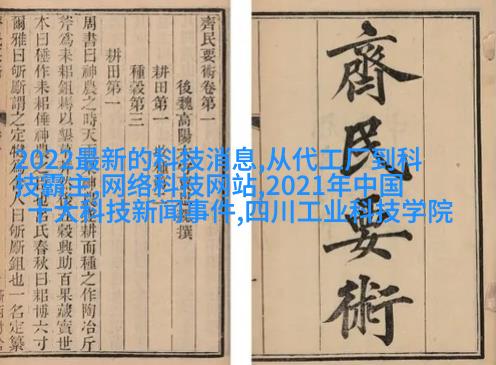 2022最新的科技消息,从代工厂到科
技霸主,网络科技网站,2021年中国
十大科技新闻事件,四川工业科技学院
齊民要術
齊民要術卷第一
後魏高陽撰
耕田第一
種穀第三
耕田第一
周書曰神農之時天雨耕而種之作陶冶斤
斧爲耒耜鋤耨以墾穀興助百果藏實世
本曰倕作耒耜倕神農之氏春秋曰耜博六寸
爾雅曰斪斸謂之定犍爲舍人曰斪斸鉏也一名定纂